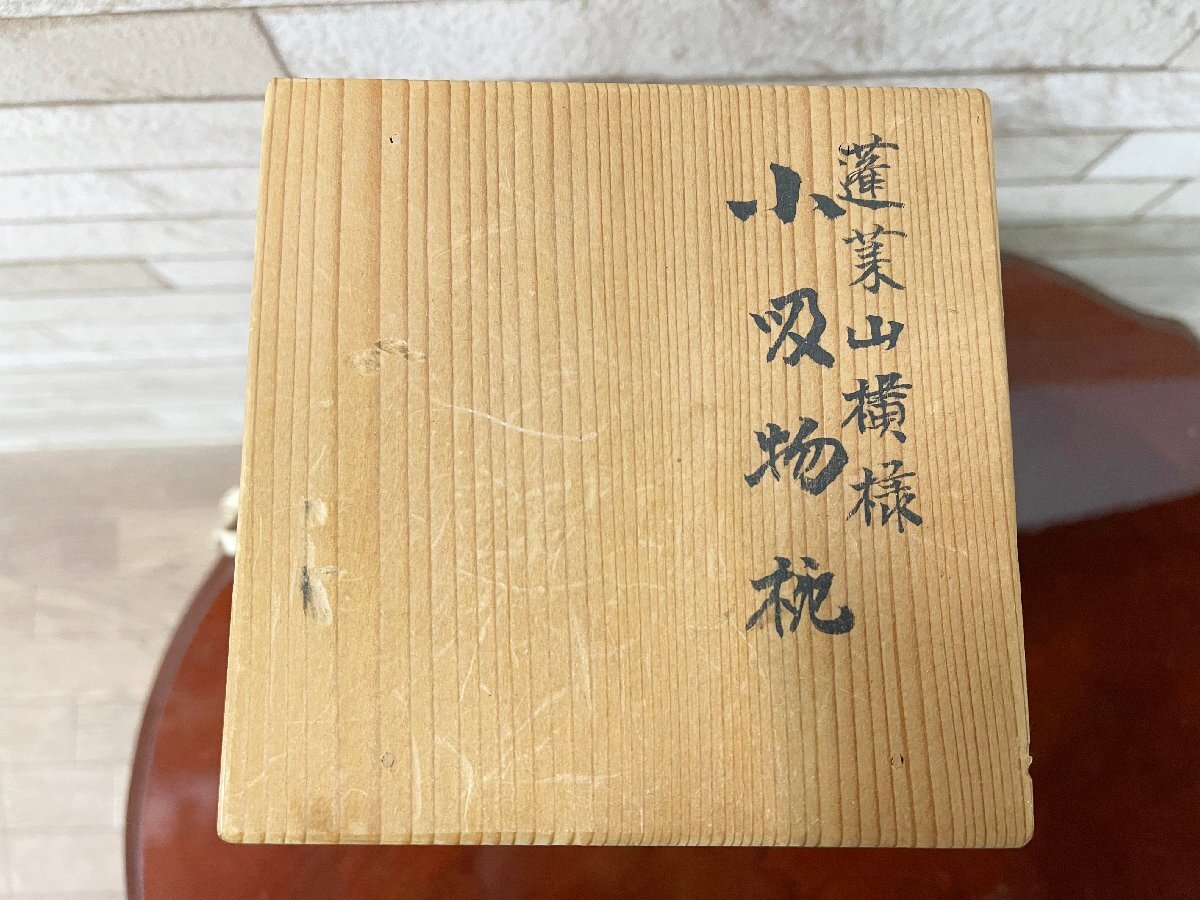 蓬莱山横様
小吸物椀